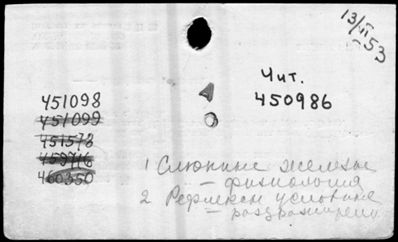 13/VI 53
Чит.
450986
451098
451099
451573
459716
460350
1 Слюнные железы
— физиология
2 Рефлексы условные
— раздражители